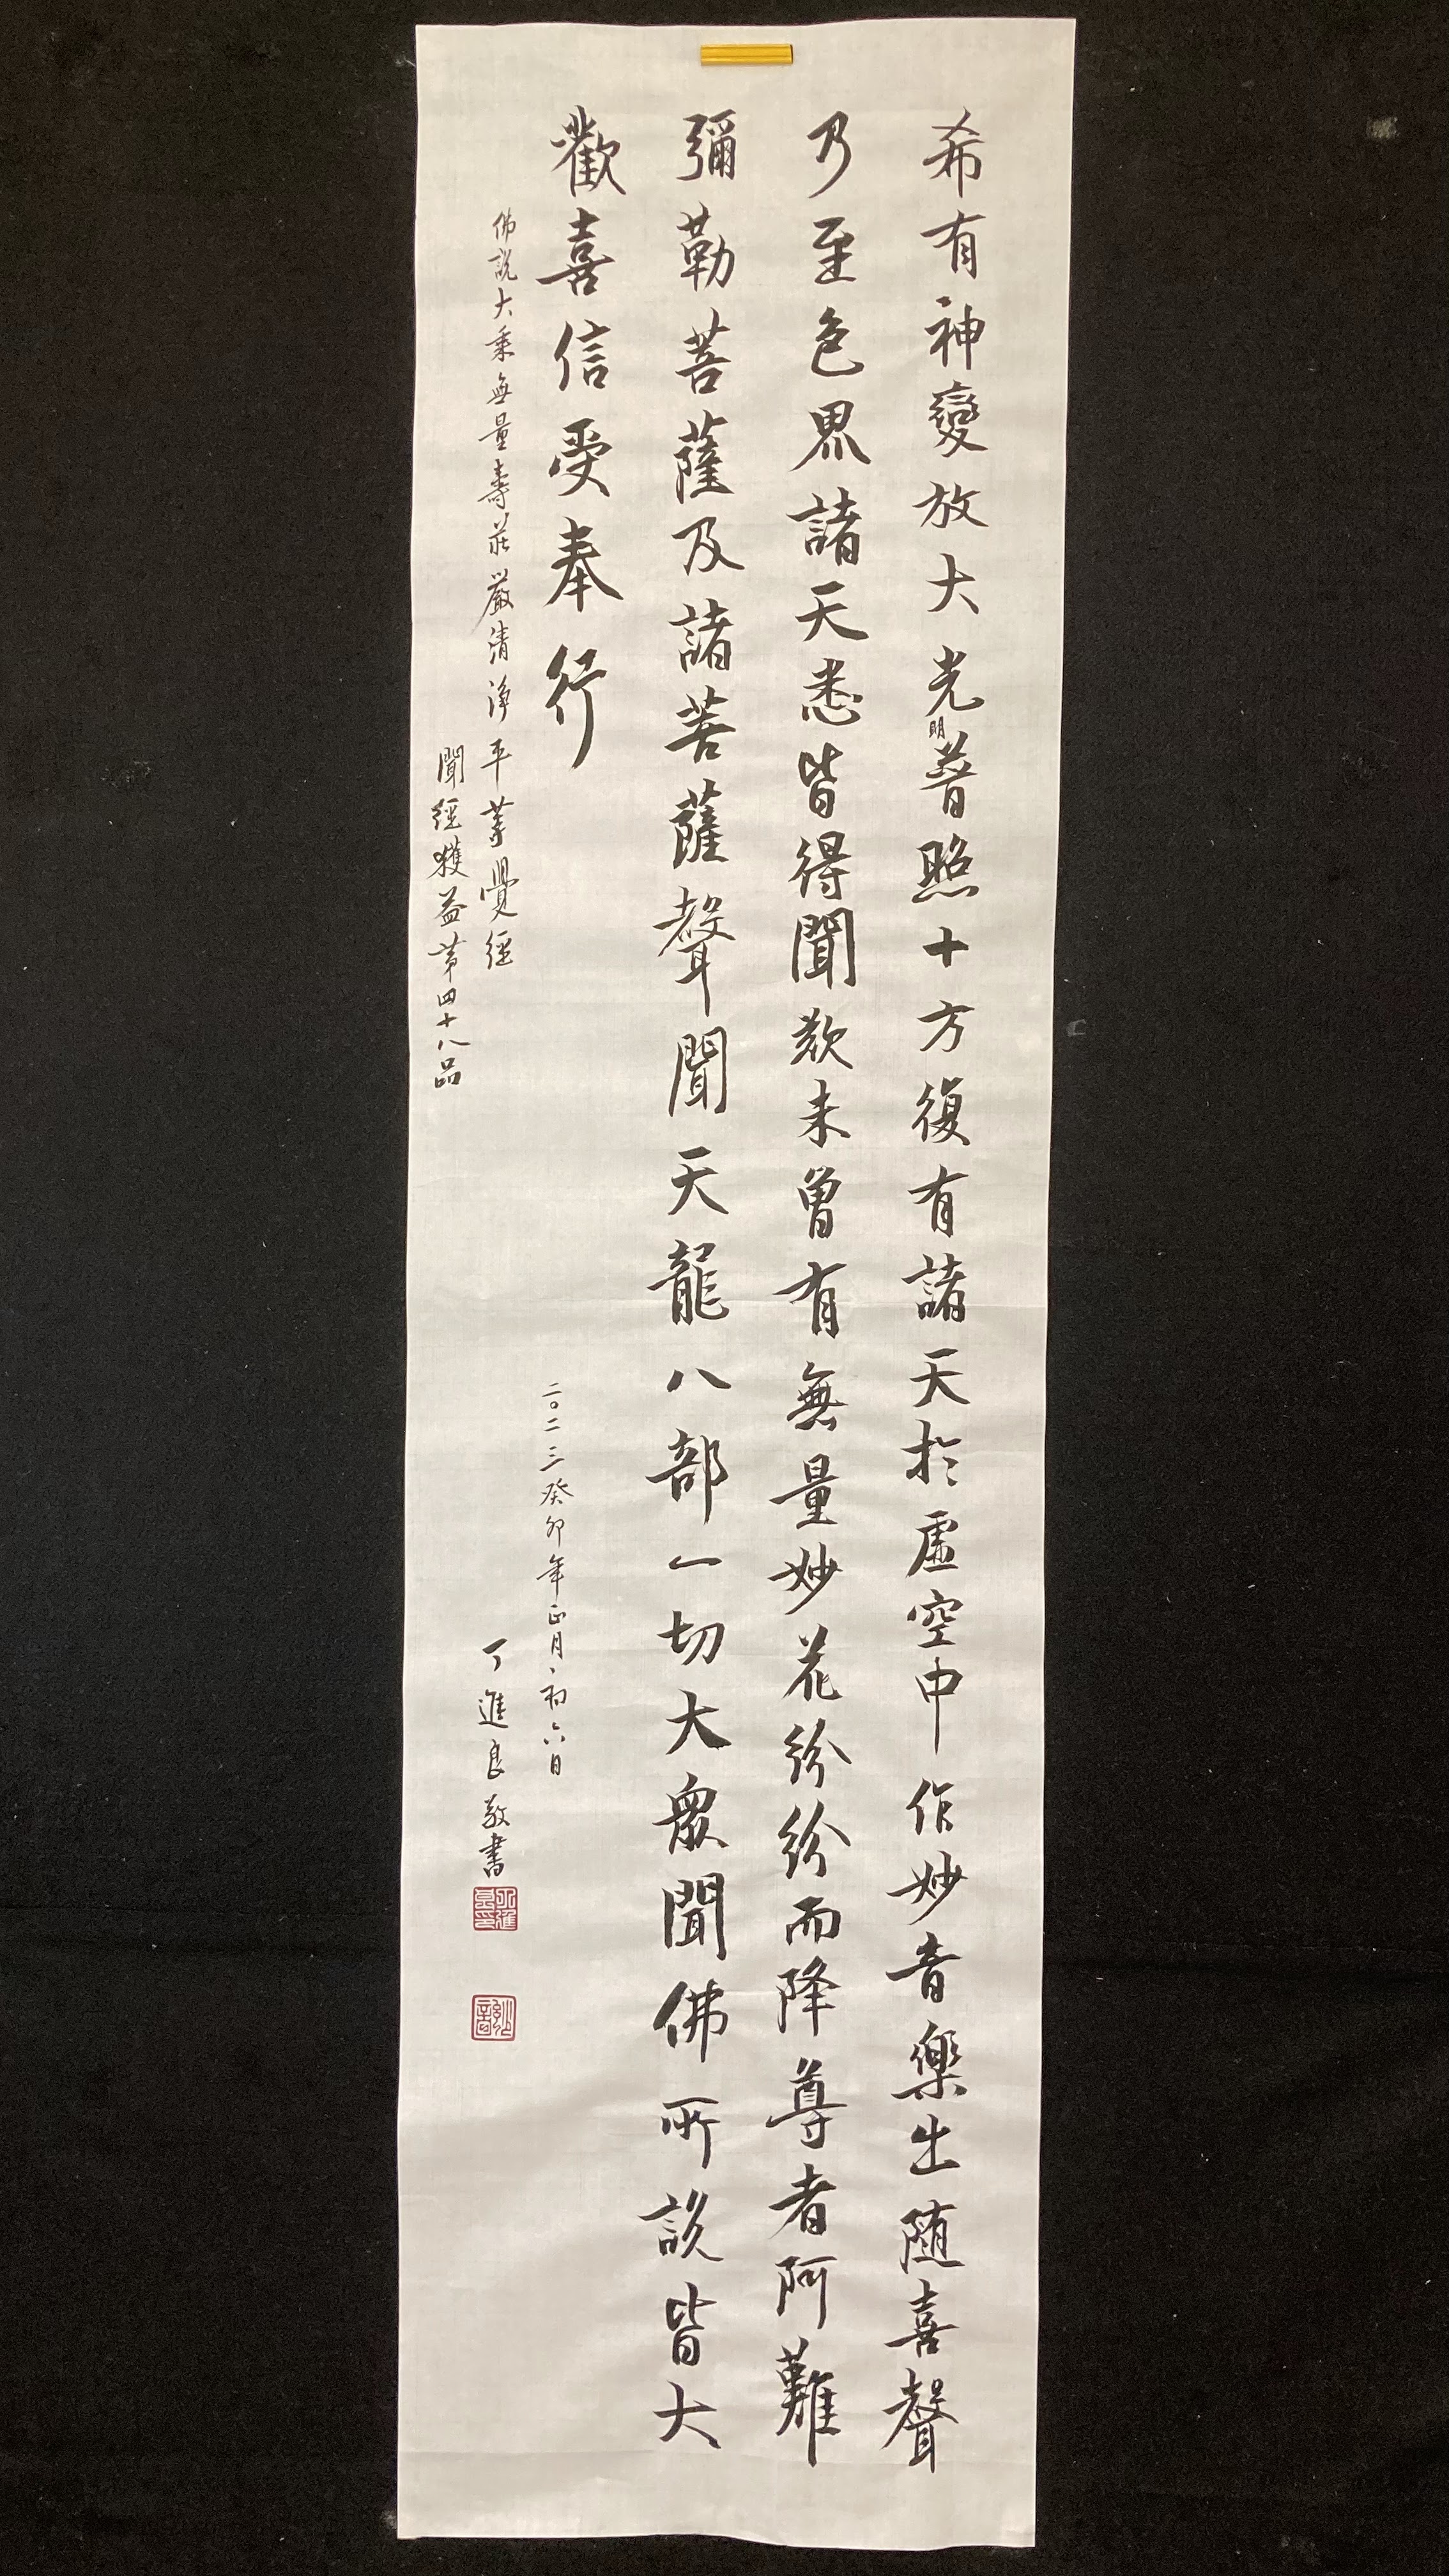 希有神變放大光明普照十方復有諸天於虛空中作妙音樂出随喜聲
乃至色界諸天悉皆得聞歎未曾有無量妙花紛紛而降尊者阿難
彌勒菩薩及諸菩薩聲聞天龍八部一切大眾聞佛所說皆大
歡喜信受奉行
佛說大乘無量壽莊嚴清淨平等覺經
聞經獲益第四十八品
二〇二三癸卯年正月初六日
丁進良敬書